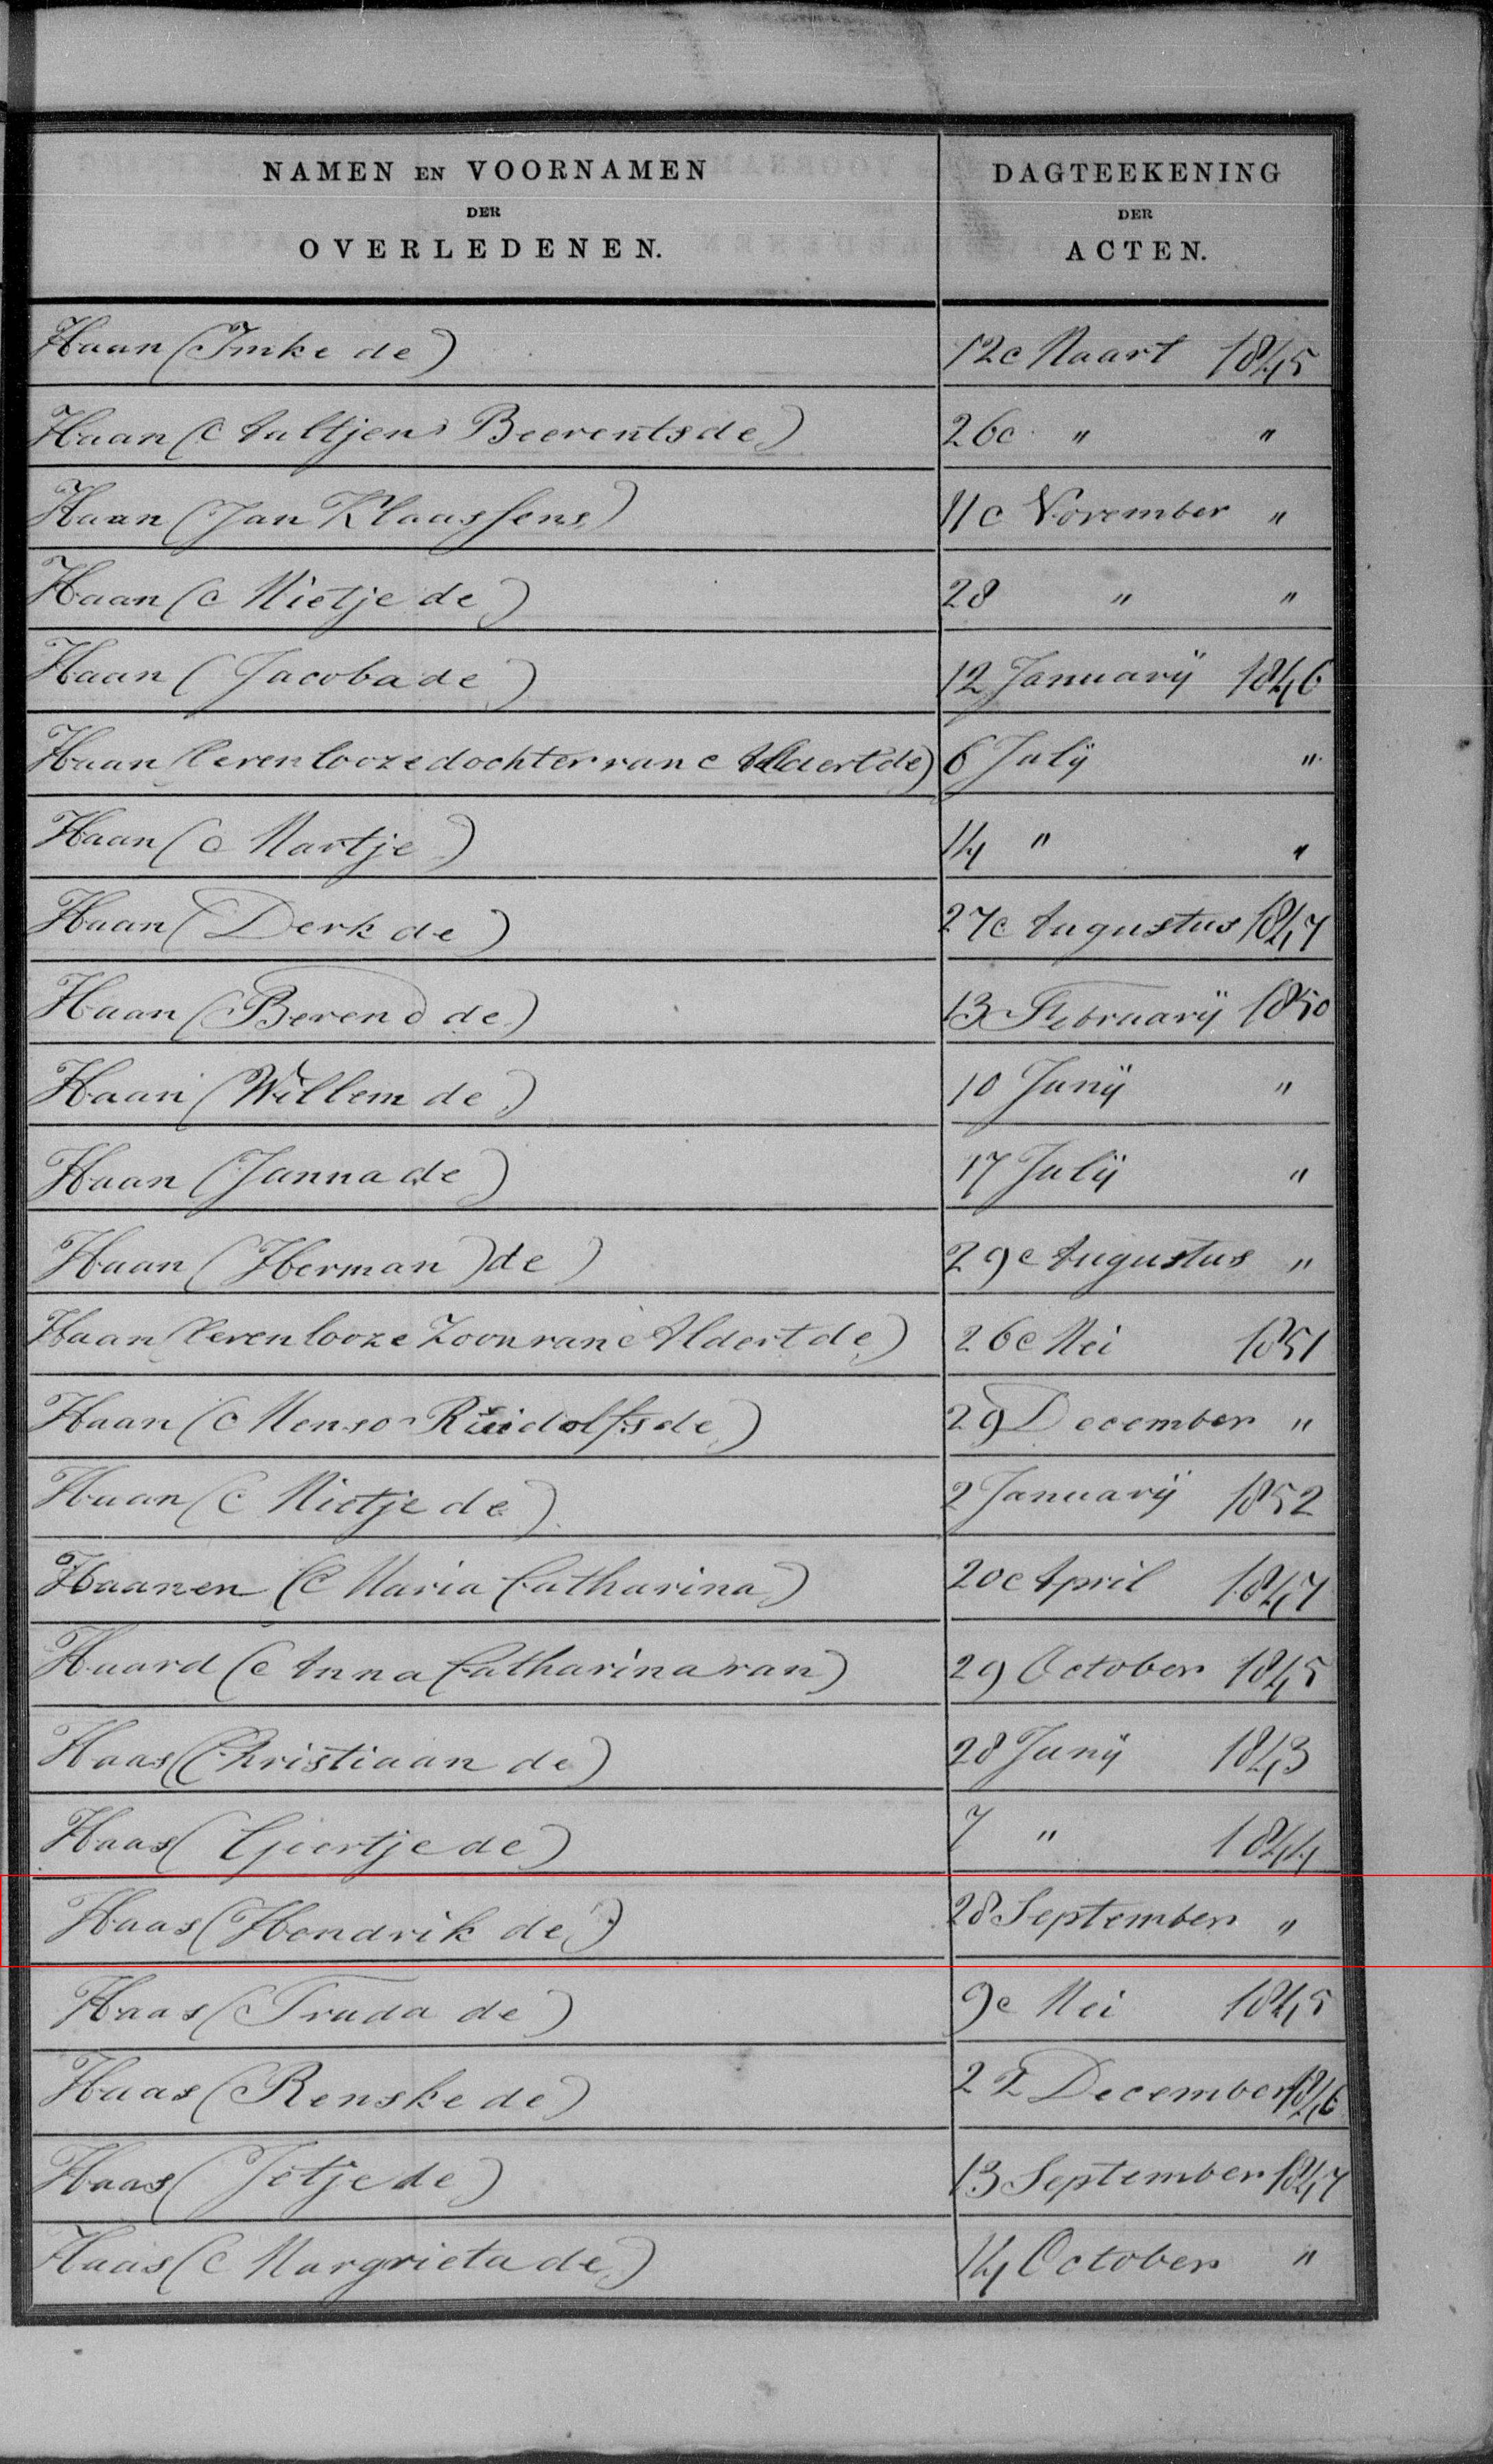 NAMEN EN VOORNAMEN
DER
OVERLEDENEN.
DAGTEEKENING
DER
ACTEN.
Haan (Imke de) 12 Maart 1845
Haan (Aaltjen Beerents de) 26 " "
Haan (Jan Klaassens) 11 November "
Haan (Mietje de) 28 " "
Haan (Jacoba de) 12 Januarij 1846
Haan (levenlooze dochter van Aldert de) 6 Julij "
Haan (Martje) 14 " "
Haan (Derk de) 27 Augustus 1847
Haan (Berend de) 13 Februarij 1850
Haan (Willem de) 10 Junij "
Haan (Janna de) 17 Julij "
Haan (Herman) de) 29 Augustus "
Haan (levenlooze Zoon van Aldert de) 26 Mei 1851
Haan (Menso Ruidolfs de) 29 December "
Haan (Mietje de) 2 Januarij 1852
Haanen (Maria Catharina) 20 April 1847
Haard (Anna Catharina van) 29 October 1845
Haas (Christiaan de) 28 Junij 1843
Haas (Geertje de) 7 " 1844
Haas (Hendrik de) 28 September "
Haas (Truda de) 9 Mei 1845
Haas (Renske de) 22 December 1846
Haas (Jetje de) 13 September 1847
Haas (Margrieta de) 14 October "